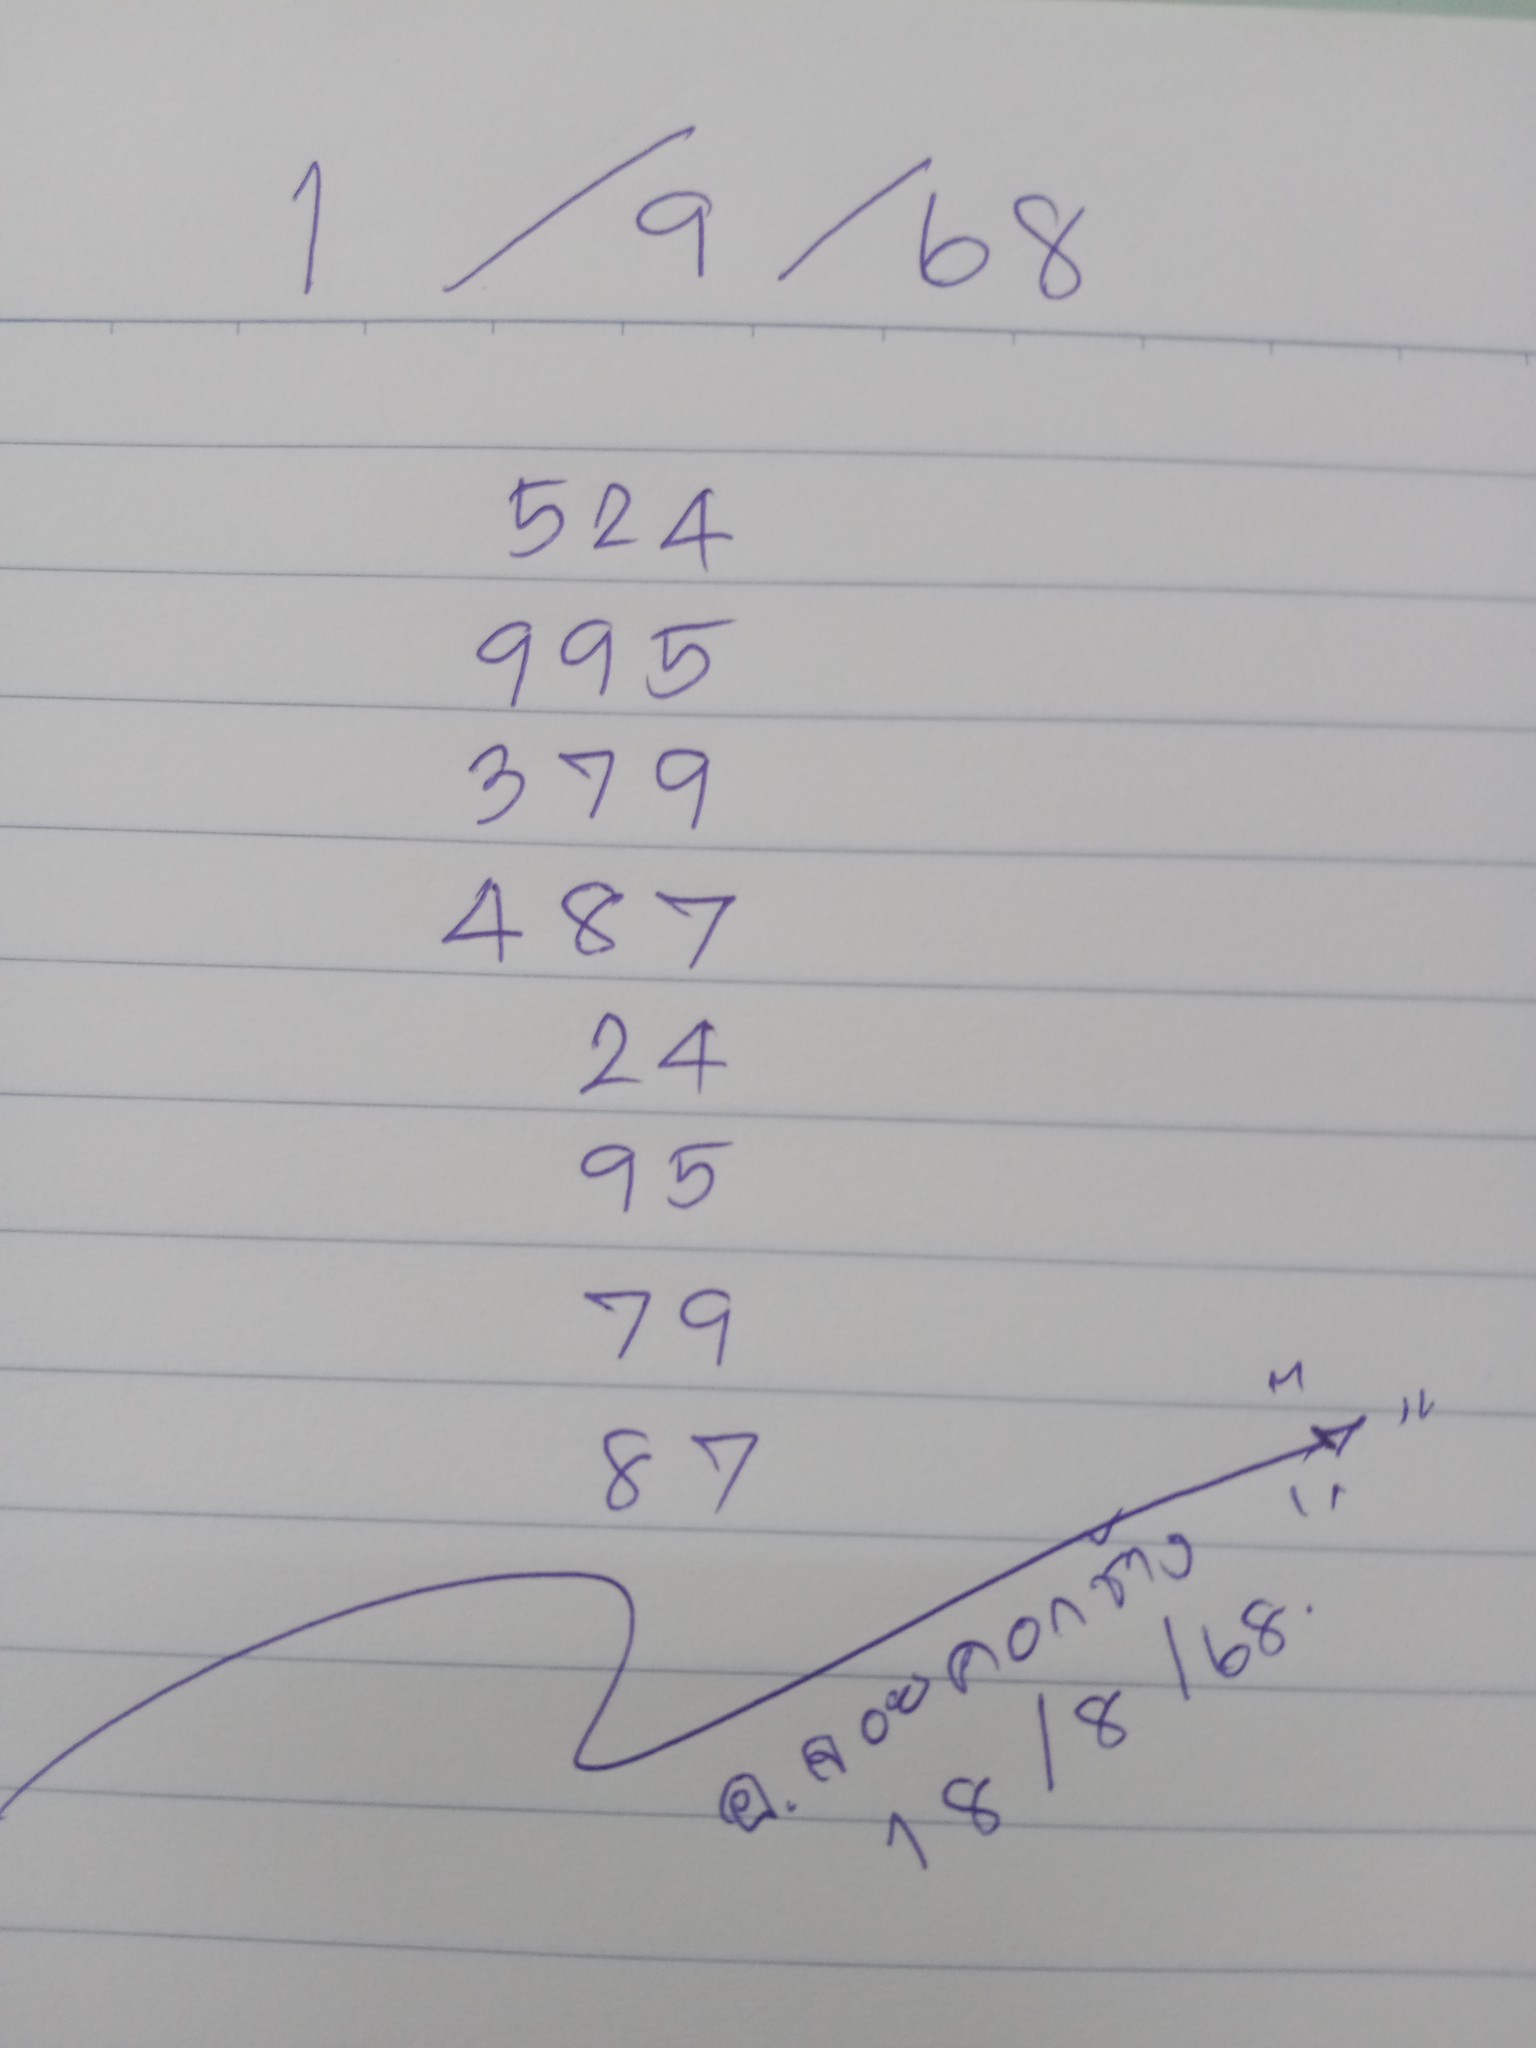 1/9/68
524
995
379
487
24
95
79
87
อ. ลอยดอกช้าง
18/8/68.